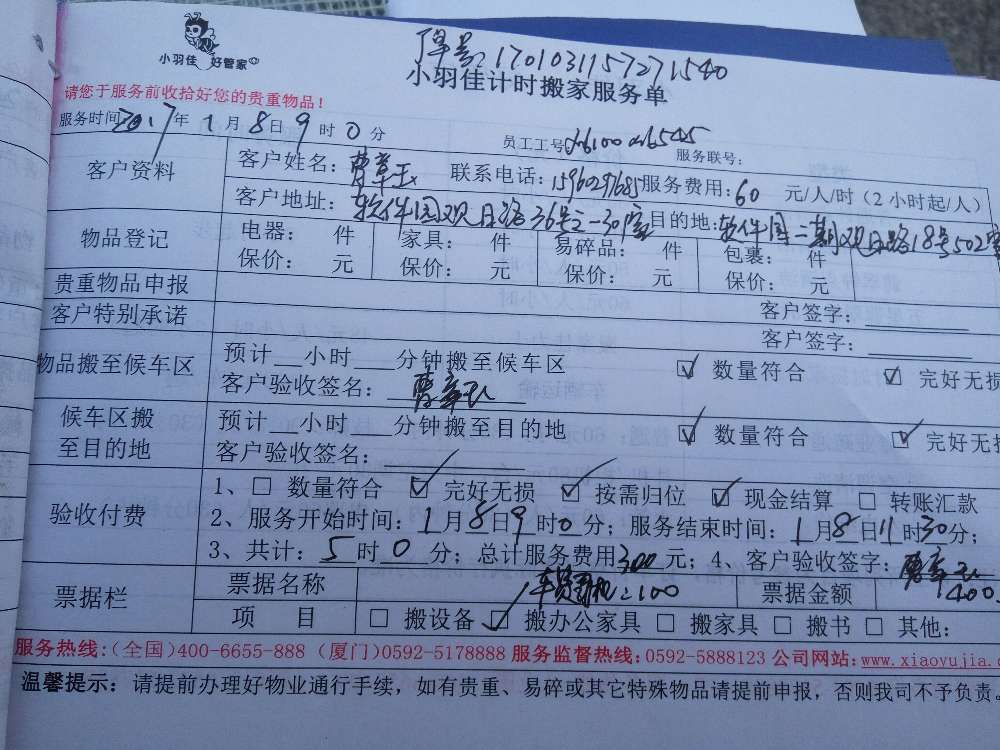 单号:1701031157271540
小羽佳 好管家
小羽佳计时搬家服务单
请您于服务前收拾好您的贵重物品！
服务时间 2017年1月8日9时0分 员工工号 服务联号:
客户资料 客户姓名: 联系电话:15960297685 服务费用:60元/人/时（2小时起/人）
客户地址:软件园观日路36号之一30室 目的地:软件园二期观日路18号502室
物品登记 电器: 件 家具: 件 易碎品: 件 包裹: 件
保价: 元 保价: 元 保价: 元 保价: 元
贵重物品申报 客户签字:
客户特别承诺 客户签字:
物品搬至候车区 预计__小时___分钟搬至候车区 ☑ 数量符合 ☑ 完好无损
客户验收签名:
候车区搬至目的地 预计__小时___分钟搬至目的地 ☑ 数量符合 ☑ 完好无损
客户验收签名:
验收付费 1、□ 数量符合 ☑ 完好无损 ☑ 按需归位 ☑ 现金结算 □ 转账汇款
2、服务开始时间:1月8日9时0分；服务结束时间:1月8日11时30分；
3、共计:5时0分；总计服务费用300元；4、客户验收签字:
票据栏 票据名称 车费 100 票据金额 400
项 目 □ 搬设备 ☑ 搬办公家具 □ 搬家具 □ 搬书 □ 其他:
服务热线:(全国)400-6655-888 (厦门)0592-5178888 服务监督热线:0592-5888123 公司网站:www.xiaoyujia.c
温馨提示: 请提前办理好物业通行手续，如有贵重、易碎或其它特殊物品请提前申报，否则我司不予负责。